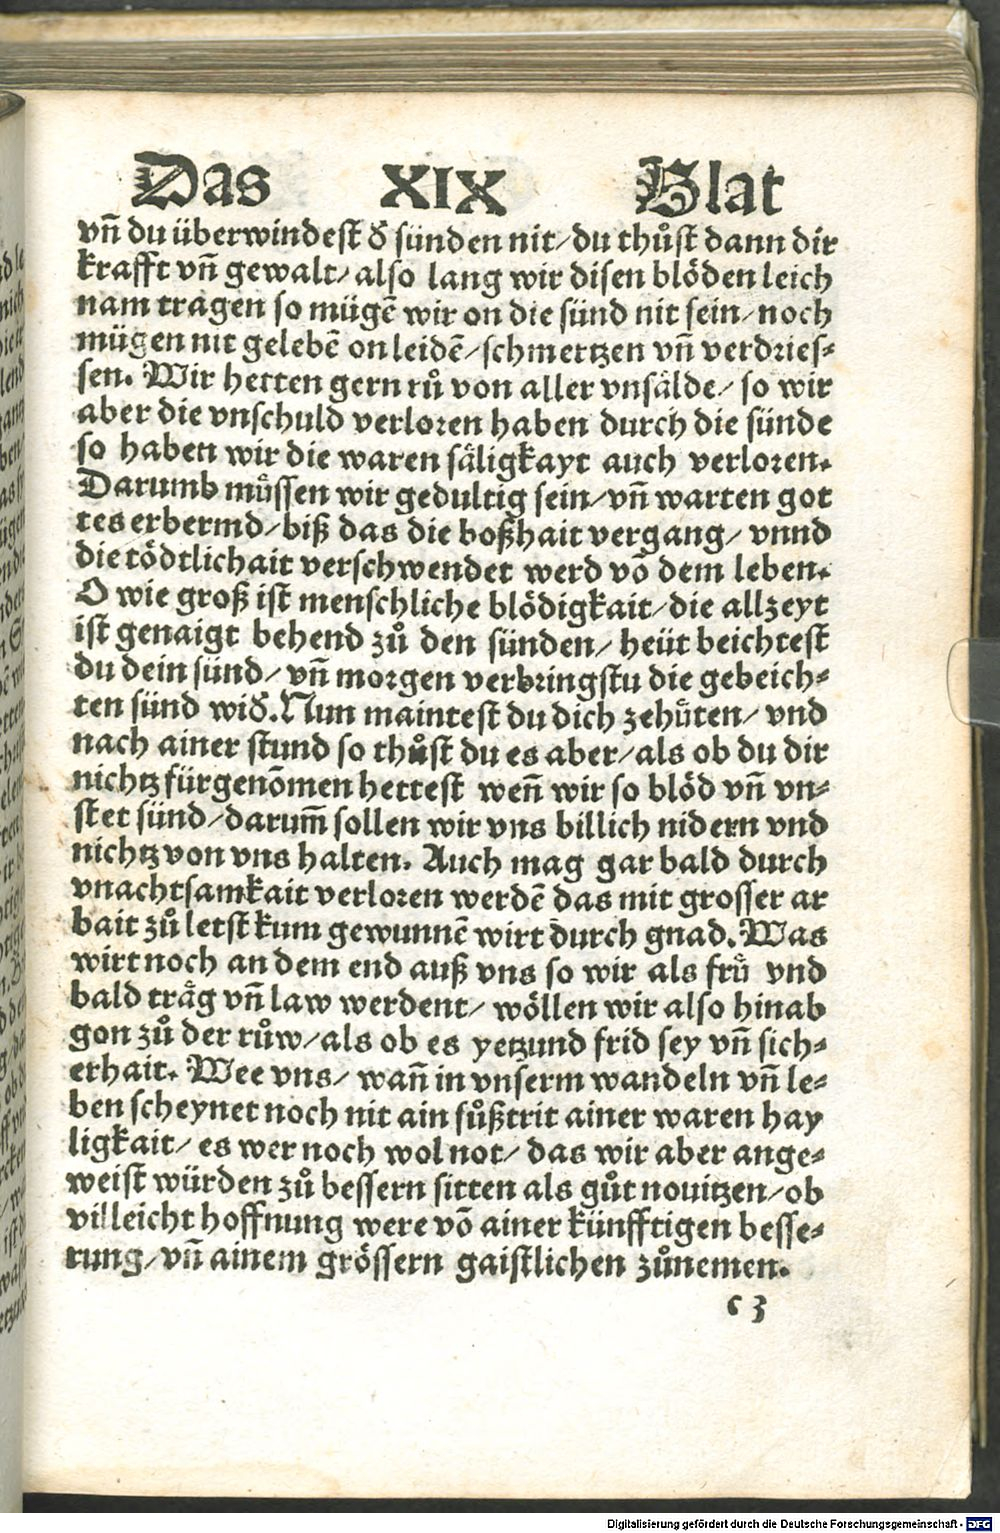 Das XIX Blat
vñ du überwindest ð sünden nit/du thůst dann dir
krafft vñ gewalt/also lang wir disen blöden leich
nam tragen so mügẽ wir on die sünd nit sein/noch
mügen nit gelebẽ on leidẽ/schmertzen vñ verdries⸗
sen. Wir hetten gern rů von aller vnsälde/ so wir
aber die vnschuld verloren haben durch die sünde
so haben wir die waren säligkayt auch verloren.
Darumb müssen wir gedultig sein/vñ warten got
tes erbermd/biß das die boßhait vergang/ vnnd
die tödtlichait verschwendet werd võ dem leben.
O wie groß ist menschliche blödigkait/die allzeyt
ist genaigt behend zů den sünden/ heüt beichtest
du dein sünd/vñ morgen verbringstu die gebeich⸗
ten sünd wið. Nun maintest du dich zehüten/ vnd
nach ainer stund so thůst du es aber/als ob du dir
nichtz fürgenõmen hettest weñ wir so blöd vñ vn⸗
stet sünd/darum̃ sollen wir vns billich nidern vnd
nichtz von vns halten. Auch mag gar bald durch
vnachtsamkait verloren werdẽ das mit grosser ar
bait zů letst kum gewunnẽ wirt durch gnad. Was
wirt noch an dem end auß vns so wir als frü vnd
bald träg vñ law werdent/ wöllen wir also hinab
gon zů der růw/als ob es yetzund frid sey vñ sich⸗
erhait. Wee vns/ wañ in vnserm wandeln vñ le⸗
ben scheynet noch nit ain fůßtrit ainer waren hay
ligkait/ es wer noch wol not/ das wir aber ange⸗
weist würden zů bessern sitten als gůt nouitzen/ob
villeicht hoffnung were võ ainer künfftigen besse⸗
rung/vñ ainem grössern gaistlichen zůnemen.
c 3
Digitalisierung gefördert durch die Deutsche Forschungsgemeinschaft - DFG